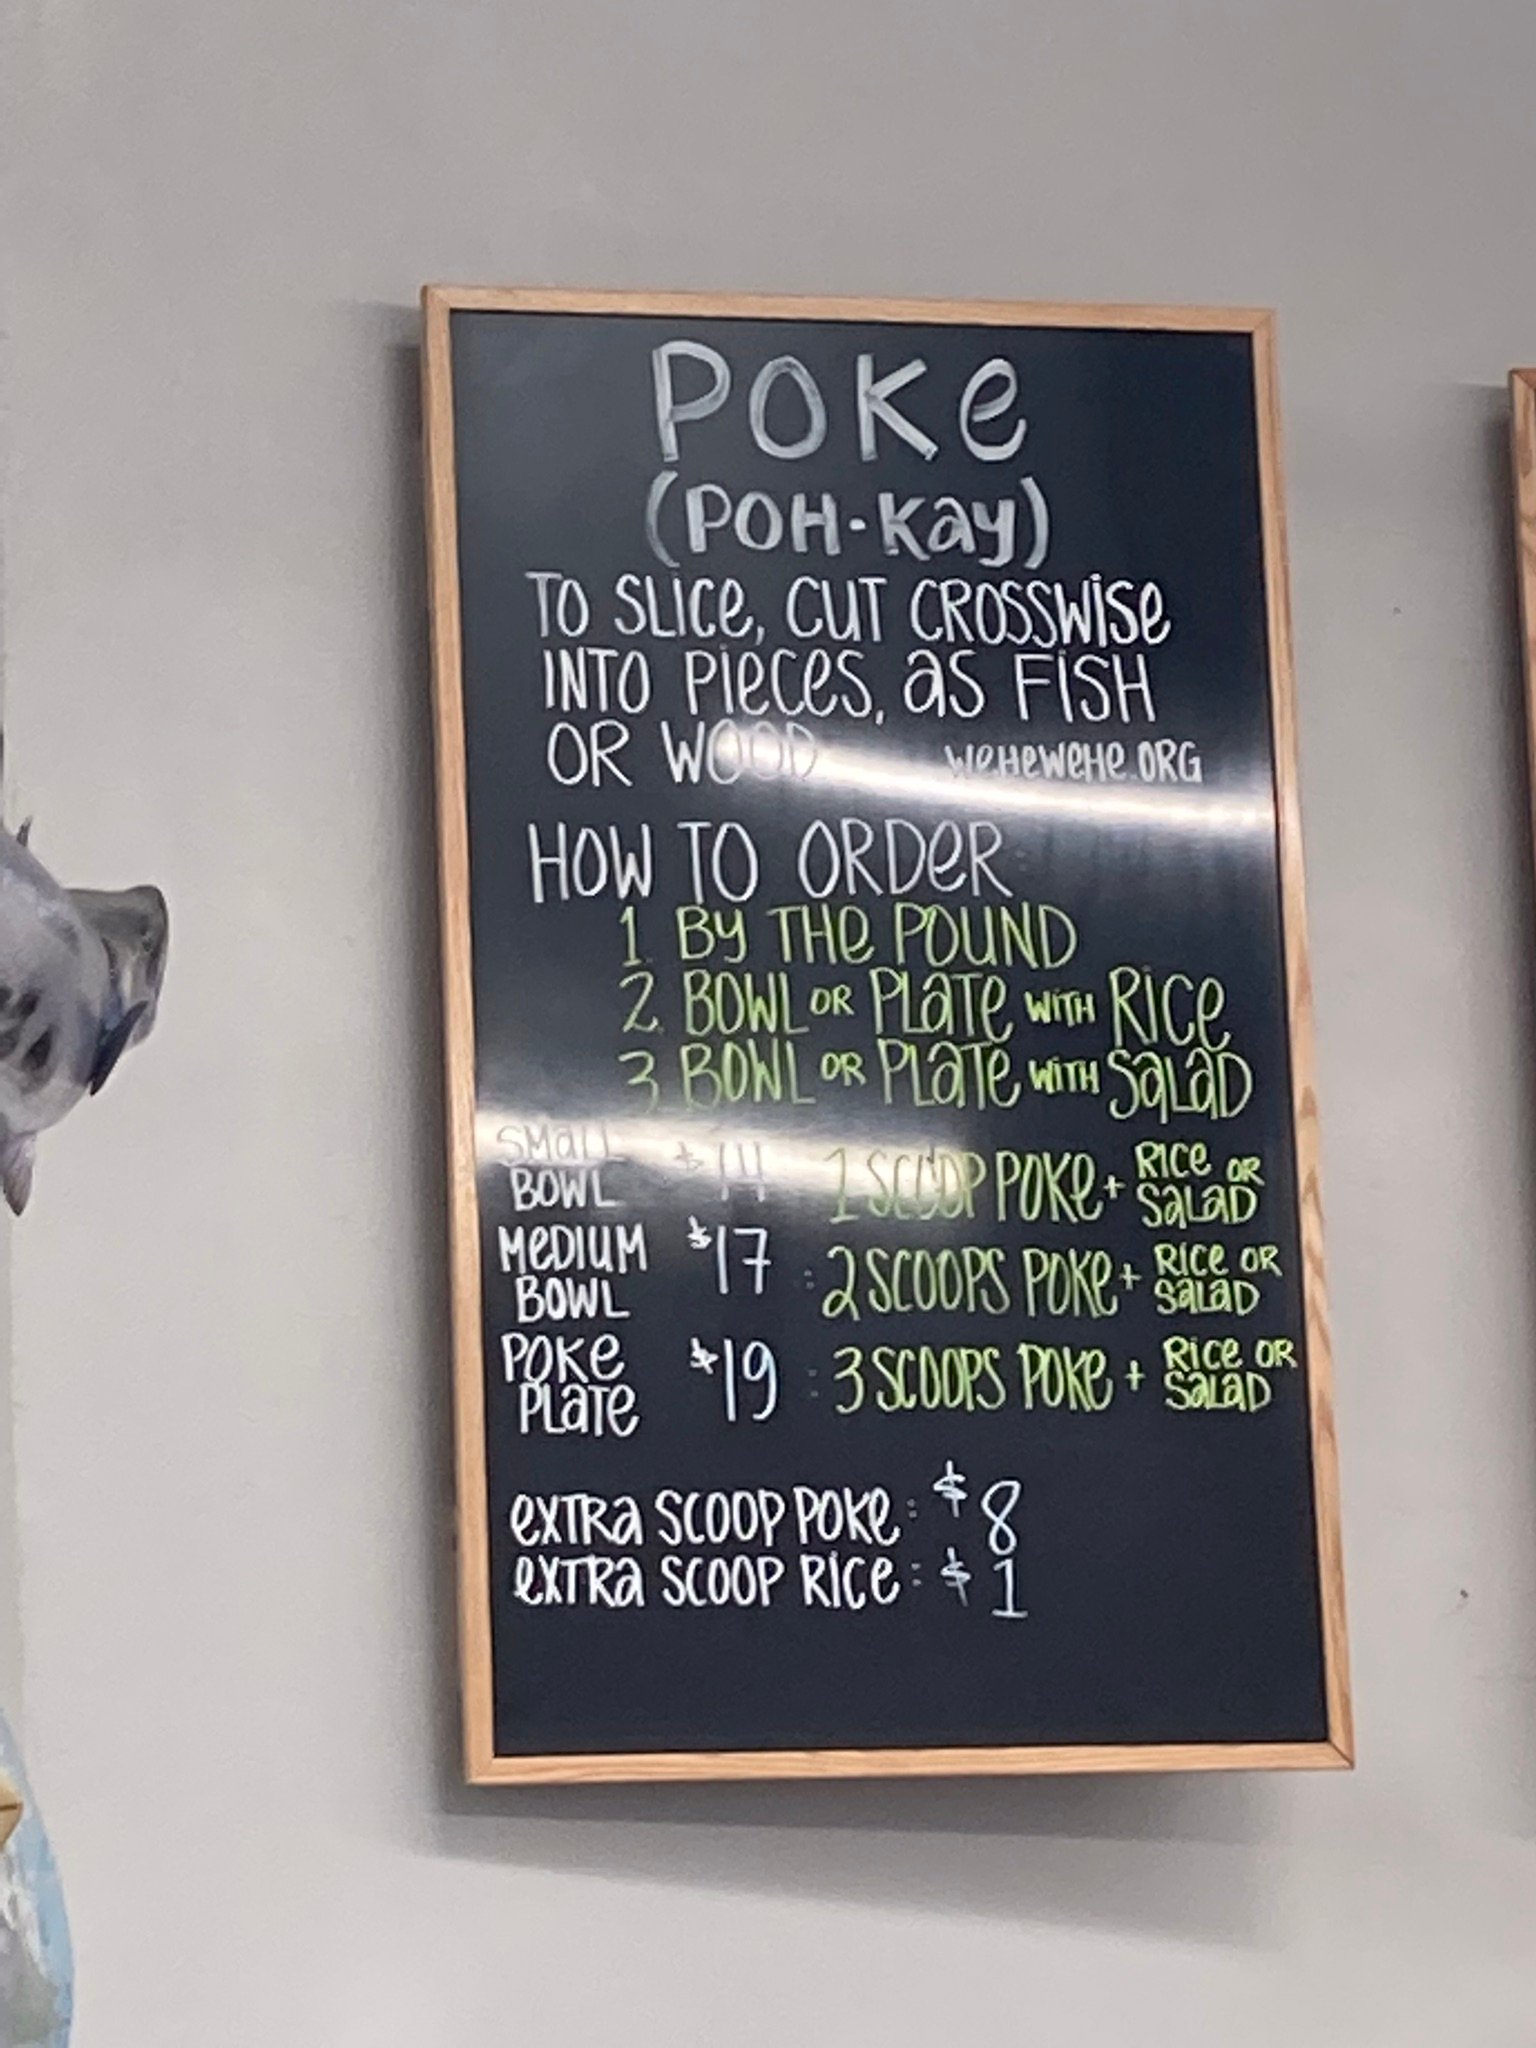 POKe
(POH-Kay)
TO SLICe, CUT CROSSWiSe
INTO PIeCeS, aS FISH
OR WOOD weHeweHe.ORG
HOW TO ORDeR
1. By THe POUND
2. BOWL OR PLaTe WITH RICe
3. BOWL OR PLaTe WITH SaLaD
SMaLL BOWL $14 1 SCOOP POKe + RICe OR SaLaD
MeDIUM BOWL $17 : 2 SCOOPS POKe + RICe OR SaLaD
POKe PLaTe $19 : 3 SCOOPS POKe + RICe OR SaLaD
eXTRa SCOOP POKe : $8
eXTRa SCOOP RICe : $1